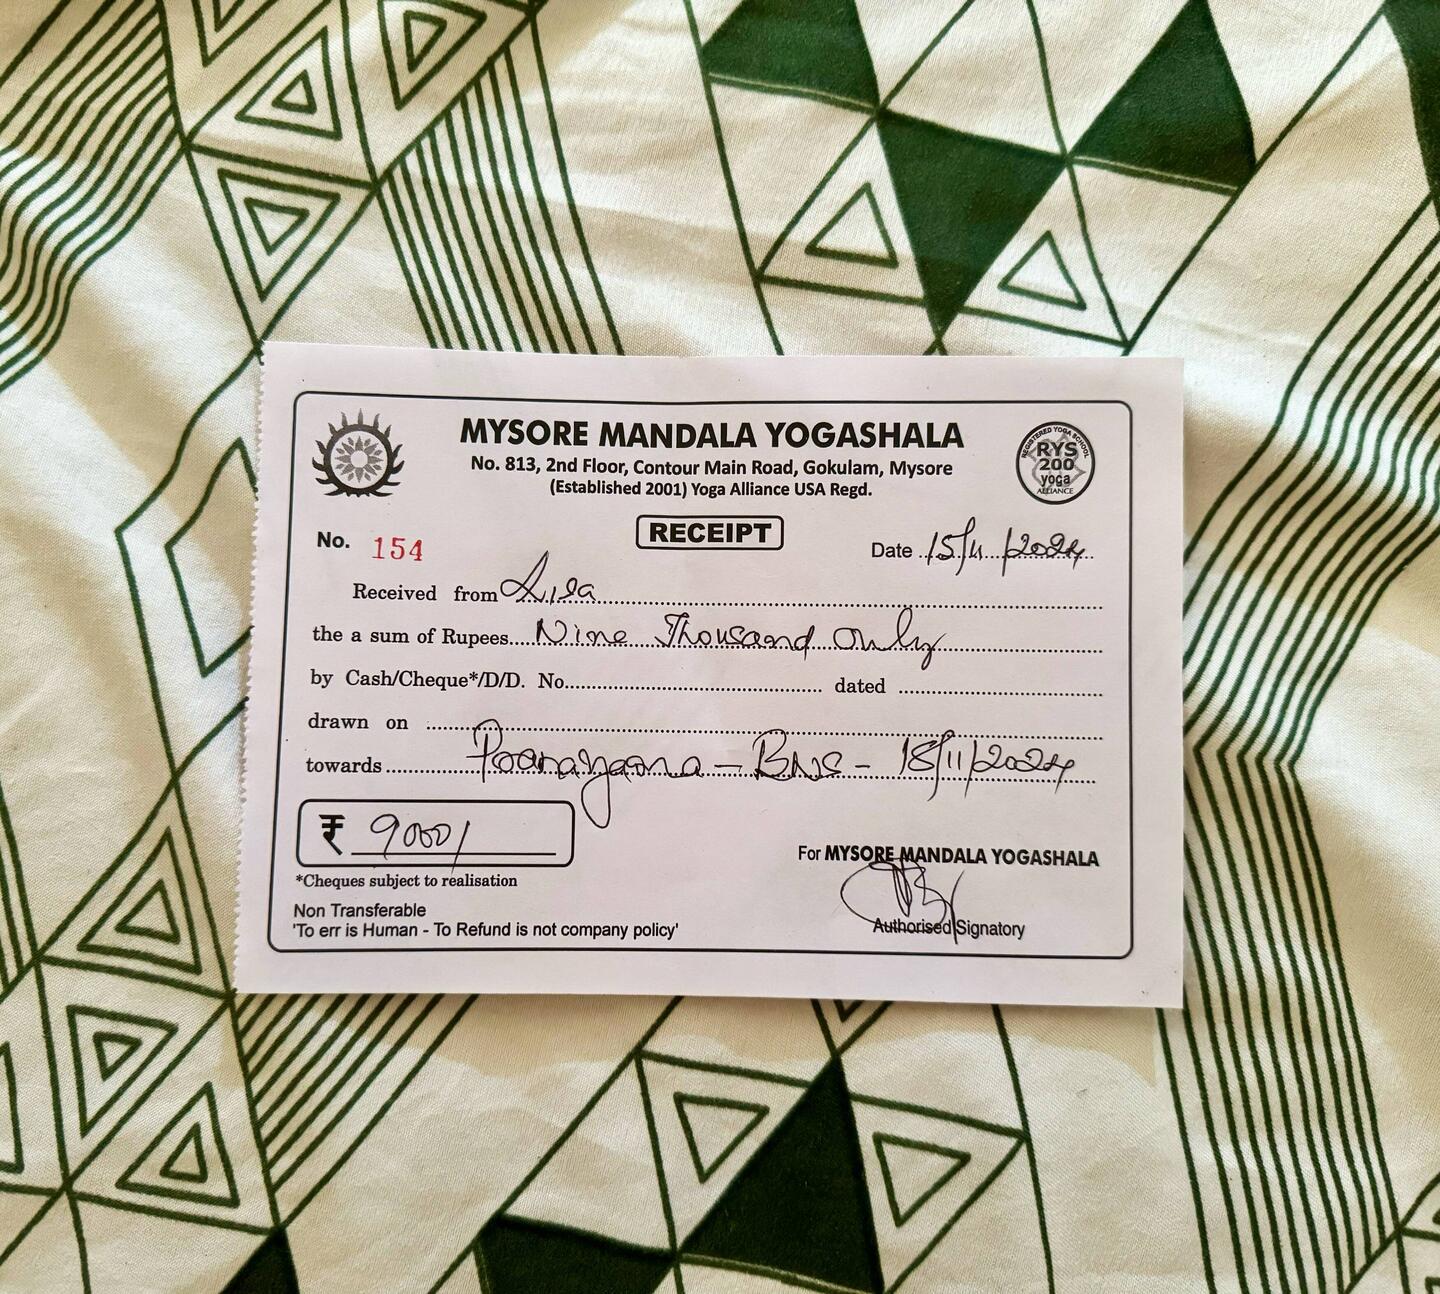 MYSORE MANDALA YOGASHALA
No. 813, 2nd Floor, Contour Main Road, Gokulam, Mysore
(Established 2001) Yoga Alliance USA Regd.
REGISTERED YOGA SCHOOL
RYS
200
yoga
ALLIANCE
RECEIPT
No. 154
Date 15/11/2024
Received from Lisa
the a sum of Rupees Nine Thousand Only
by Cash/Cheque*/D/D. No. dated
drawn on
towards Pranayama - BNS - 18/11/2024
₹ 9000/
*Cheques subject to realisation
For MYSORE MANDALA YOGASHALA
Non Transferable
'To err is Human - To Refund is not company policy'
Authorised Signatory